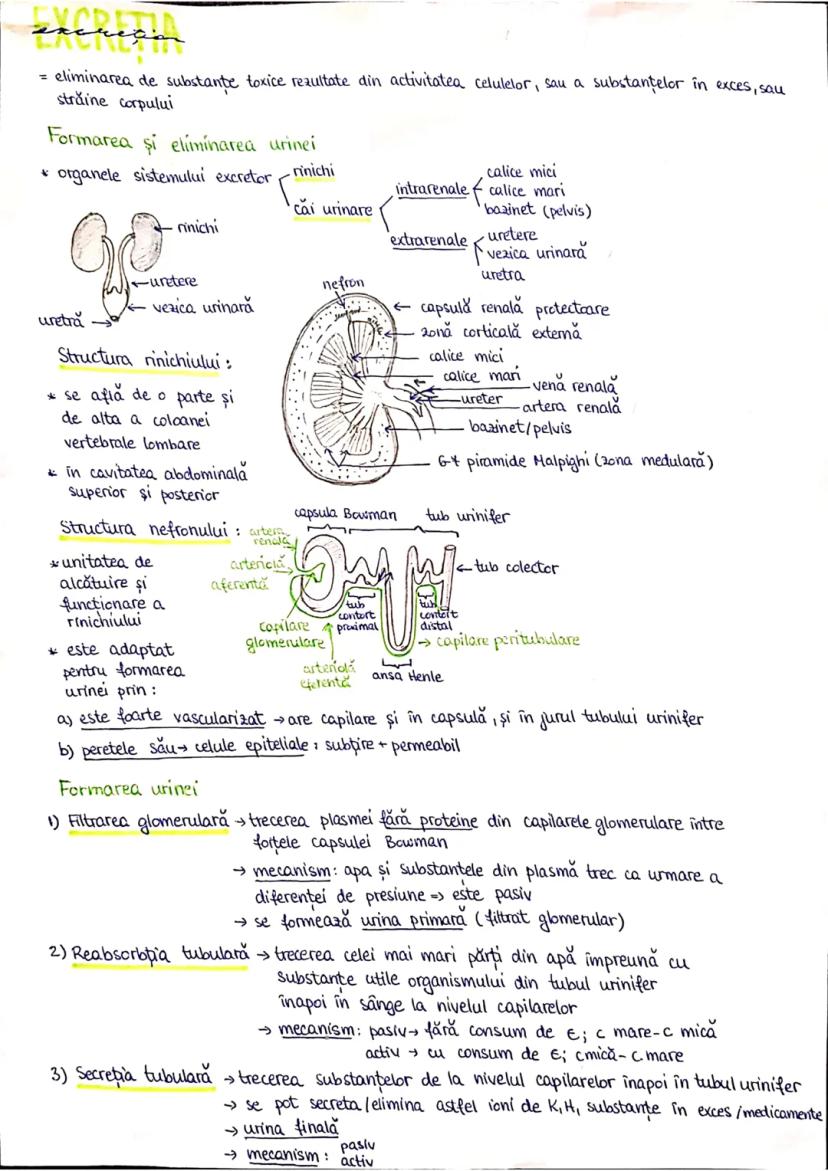 EXCREȚIA
excreția
= eliminarea de substanțe toxice rezultate din activitatea celulelor, sau a substanțelor în exces, sau
străine corpului
Formarea și eliminarea urinei
* organele sistemului excretor
rinichi
căi urinare
intrarenale
calice mici
calice mari
bazinet (pelvis)
extrarenale
uretere
vezica urinară
uretra
rinichi
uretere
vezica urinară
uretră
nefron
capsulă renală protectoare
zonă corticală externă
calice mici
calice mari
venă renală
ureter
artera renală
bazinet/pelvis
6-7 piramide Malpighi (zona medulară)
Structura rinichiului:
* se află de o parte și
de alta a coloanei
vertebrale lombare
* în cavitatea abdominală
superior și posterior
Structura nefronului:
* unitatea de
alcătuire și
funcționare a
rinichiului
* este adaptat
pentru formarea
urinei prin:
capsula Bowman
tub urinifer
artera
renală
arteriolă
aferentă
tub colector
tub
contort
proximal
tub
contort
distal
capilare
glomerulare
→ capilare peritubulare
arteriolă
eferentă
ansa Henle
a) este foarte vascularizat → are capilare și în capsulă, și în jurul tubului urinifer
b) peretele său → celule epiteliale: subțire + permeabil
Formarea urinei
1) Filtrarea glomerulară → trecerea plasmei fără proteine din capilarele glomerulare între
foițele capsulei Bowman
→ mecanism: apa și substanțele din plasmă trec ca urmare a
diferenței de presiune => este pasiv
→ se formează urina primară (filtrat glomerular)
2) Reabsorbția tubulară → trecerea celei mai mari părți din apă împreună cu
substanțe utile organismului din tubul urinifer
înapoi în sânge la nivelul capilarelor
→ mecanism: pasiv → fără consum de E; c mare - c mică
activ → cu consum de E; c mică - c mare
3) Secreția tubulară → trecerea substanțelor de la nivelul capilarelor înapoi în tubul urinifer
→ se pot secreta/elimina astfel ioni de K, H, substanțe în exces/medicamente
→ urina finală
→ mecanism: pasiv
activ